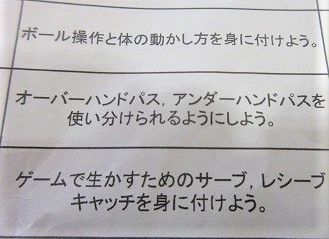 ボール操作と体の動かし方を身に付けよう。
オーバーハンドパス,アンダーハンドパスを
使い分けられるようにしよう。
ゲームで生かすためのサーブ,レシーブ
キャッチを身に付けよう。